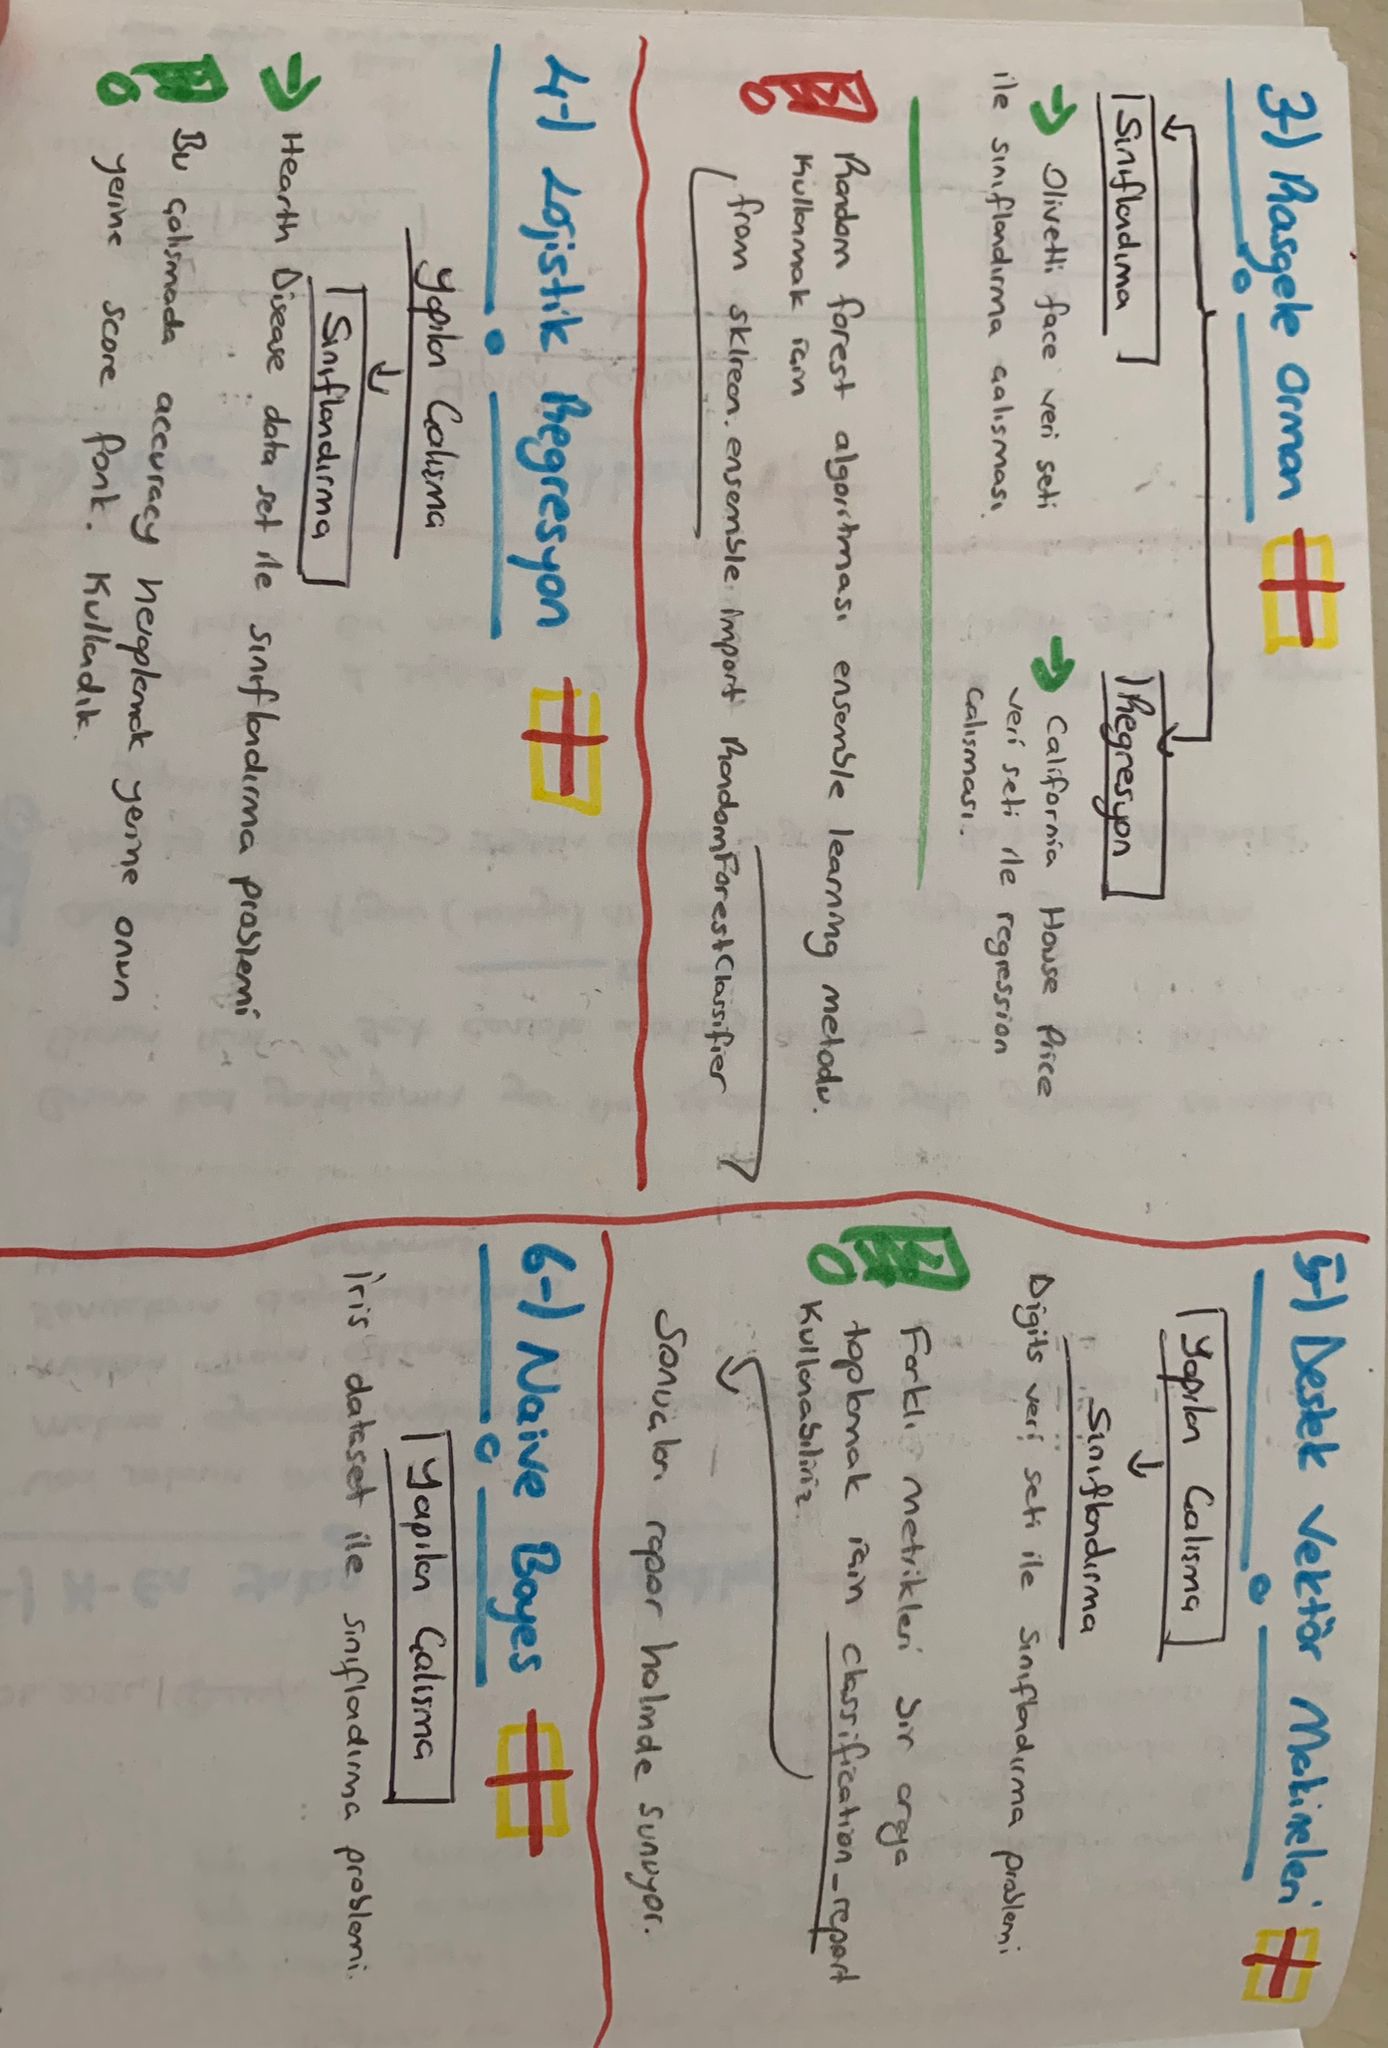 3-) Rasgele Orman
Sınıfladıma
Regresyon
Olivetti face veri seti
ile sınıflandırma calısması.
California House Price
veri seti ile regression
calısması.
Random forest algoritması ensemble learning metodu.
Kullanmak için
from sklrean.ensemble import RandomForestClassifier
4-) Lojistik Regresyon
Yapılan Calısma
Sınıflandırma
Hearth Disease data set ile sınıfladırma problemi
Bu çalısmada accuracy heaplamak yerine onun
yerine score fonk. Kulladık.
5-) Destek Vektör Makineleri
Yapılan Calısma
Sınıflandırma
Digits veri seti ile sınıfladırma problemi
Farklı metrikleri bir araya
toplamak için classification_report
Kullanabiliriz.
Sonucları rapor halinde sunuyor.
6-) Naive Bayes
Yapılan Calısma
İris dataset ile sınıfladırma problemi.